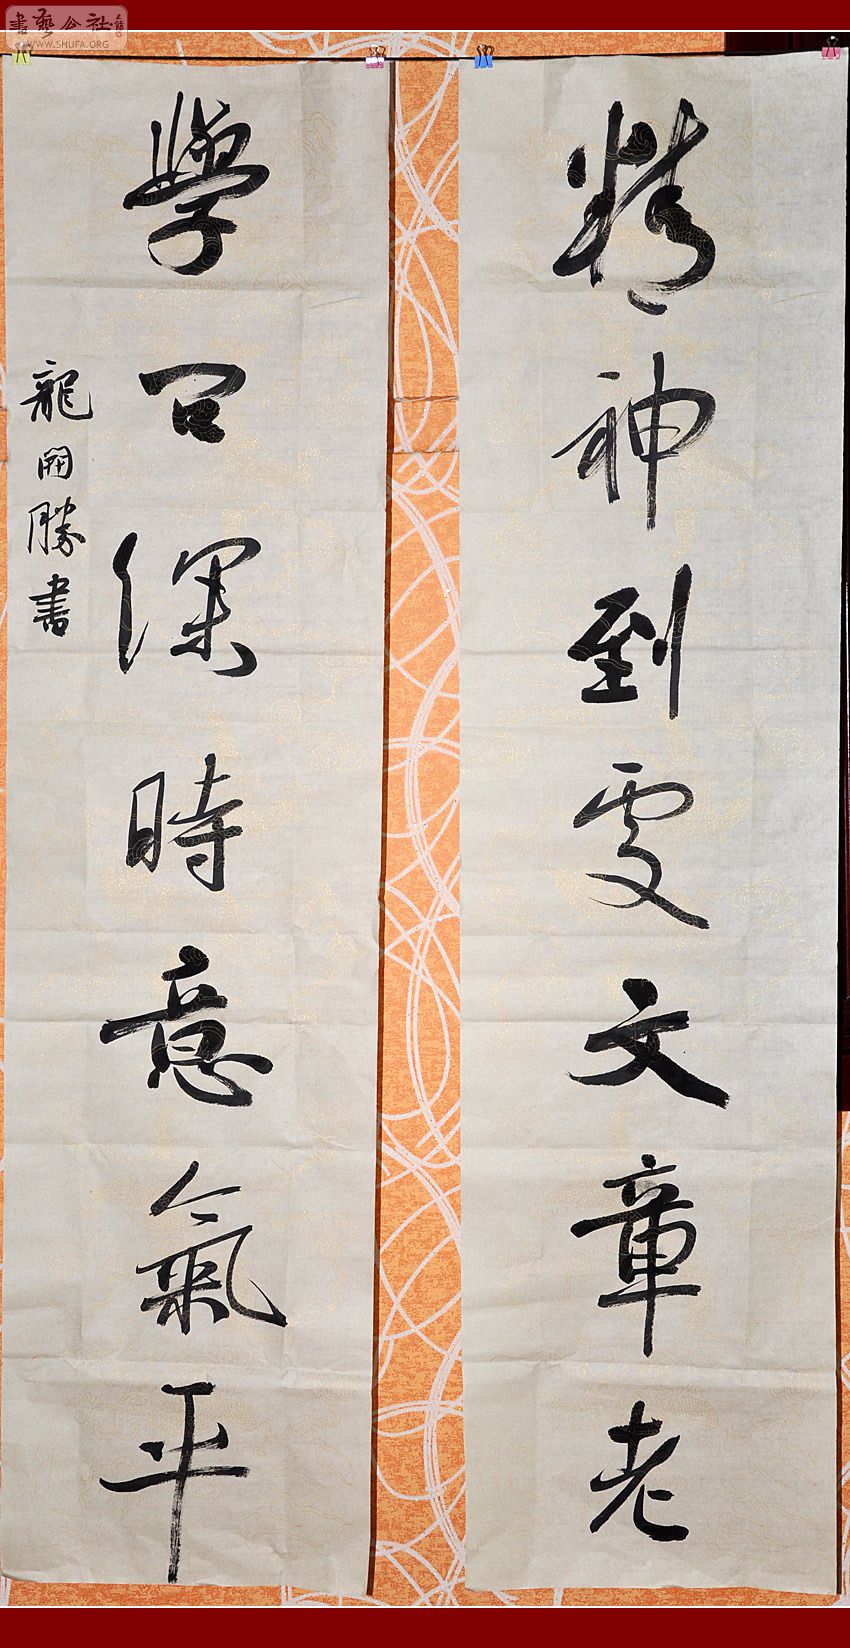 精神到處文章老
學問深時意氣平
龍開勝書
書藝公社
WWW.SHUFA.ORG